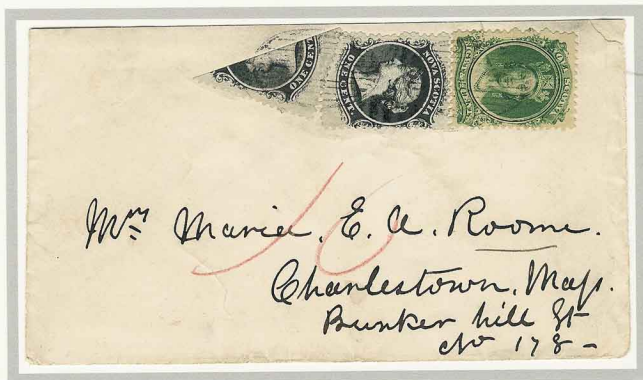 ONE CENT
ONE CENT NOVA SCOTIA
NOVA SCOTIA
10
Mrs Maria. E. A. Roome.
Charlestown. Mass.
Bunker hill St
No 178-